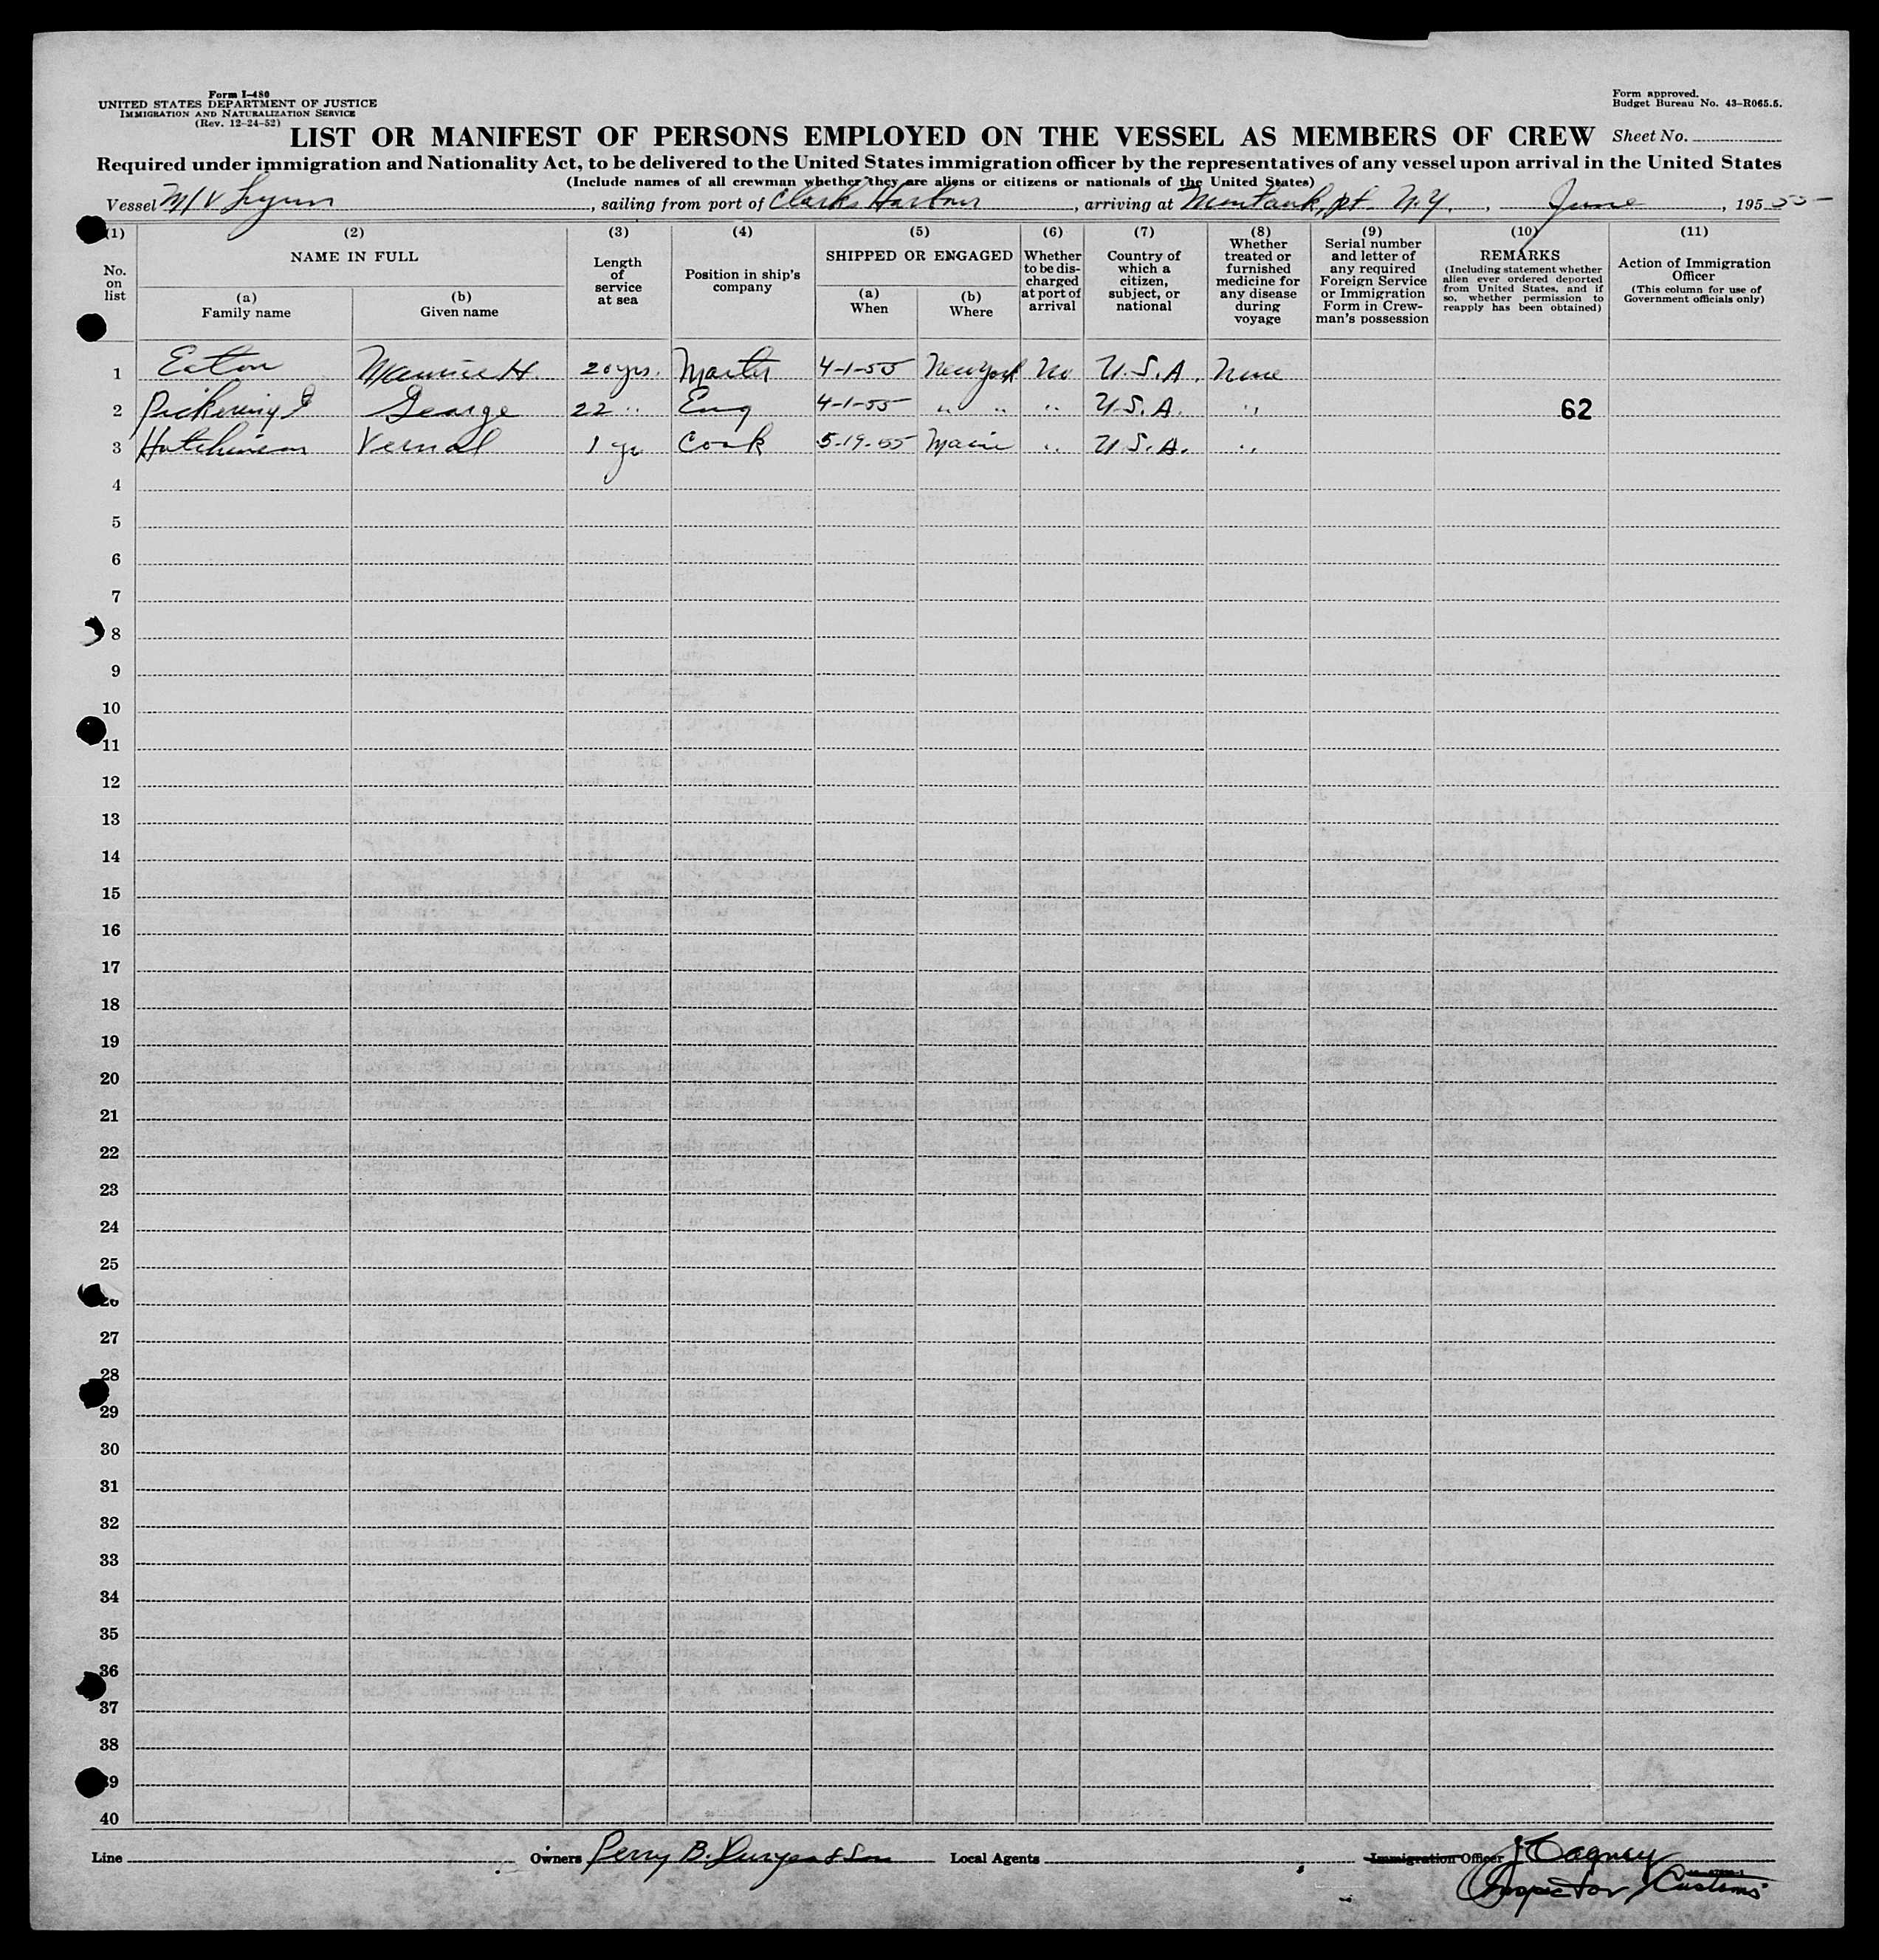 Form I-480
UNITED STATES DEPARTMENT OF JUSTICE
IMMIGRATION AND NATURALIZATION SERVICE
(Rev. 12-24-52)
Form approved.
Budget Bureau No. 43-R065.5.
LIST OR MANIFEST OF PERSONS EMPLOYED ON THE VESSEL AS MEMBERS OF CREW
Sheet No.
Required under immigration and Nationality Act, to be delivered to the United States immigration officer by the representatives of any vessel upon arrival in the United States
(Include names of all crewman whether they are aliens or citizens or nationals of the United States)
Vessel M/V Lynn, sailing from port of Clarks Harbour, arriving at Montauk, pt. N.Y., June, 195 55
(1) (2) (3) (4) (5) (6) (7) (8) (9) (10) (11)
No. on list
NAME IN FULL
(a) Family name
(b) Given name
Length of service at sea
Position in ship's company
SHIPPED OR ENGAGED
(a) When
(b) Where
Whether to be discharged at port of arrival
Country of which a citizen, subject, or national
Whether treated or furnished medicine for any disease during voyage
Serial number and letter of any required Foreign Service or Immigration Form in Crewman's possession
REMARKS
(Including statement whether alien ever ordered deported from United States, and if so, whether permission to reapply has been obtained)
Action of Immigration Officer
(This column for use of Government officials only)
1 Eaton Maurice H. 20 yrs. Master 4-1-55 New York No U.S.A. None
2 Pickering George 22 " Eng 4-1-55 " " " U.S.A. " 62
3 Hutchinson Vernal 1 yr Cook 5-19-55 Maine " U.S.A. "
4
5
6
7
8
9
10
11
12
13
14
15
16
17
18
19
20
21
22
23
24
25
26
27
28
29
30
31
32
33
34
35
36
37
38
39
40
Line
Owners Perry B. & Son
Local Agents
Immigration Officer J Cagney
Inspector Customs